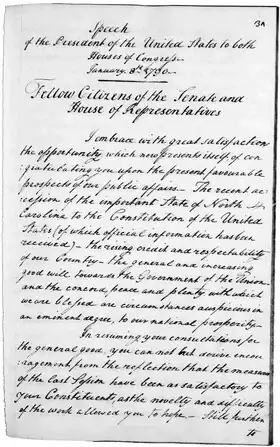 13A
Speech
of the President of the United States to both
Houses of Congress
January 8th 1790.
Fellow Citizens of the Senate and
House of Representatives
I embrace with great satisfaction
the opportunity which now presents itself of con-
gratulating you upon the present favourable
prospects of our public affairs. The recent ac-
cession of the important State of North
Carolina to the Constitution of the United
States (of which official information has been
received) – the rising credit and respectability
of our Country – the general and increasing
good will towards the Government of the Union
and the concord, peace and plenty, with which
we are blessed, are circumstances auspicious in
an eminent degree, to our national prosperity –
In resuming your consultations for
the general good, you can not but derive encou-
ragement from the reflection that the measures
of the last Session have been as satisfactory to
your Constituents, as the novelty and difficulty
of the work allowed you to hope – Still further
to